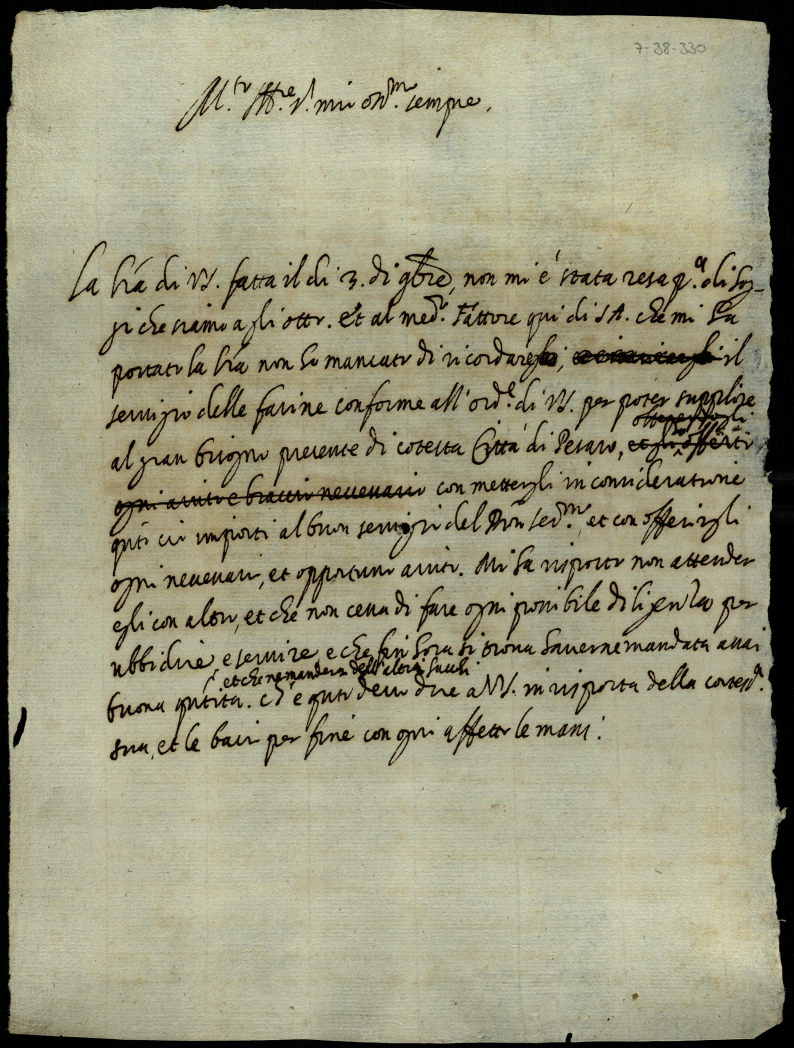 7-38-330
M.to Ill.re s.r mio oss.mo sempre.
La l'ra di VS. fatta il di 3. di 9bre, non mi é stata resa p.a di Hog-
gi che siamo agli otto. Et al med.o Fattore qui di SA. che mi ha
portato la l'ra non ho mancato di ricordargli, il
servigio delle farine conforme all'ord.e di VS. per poter supplire
al gran bisogno presente di cotesta Cittá di Pesaro,
ogni aiuto e braccio necessario con mettergli in consideratione
q'to ció importi al buon servigio del P'ron ser.mo, et con offerirgli
ogni necessario, et opportuno aiuto. Mi ha risposto non attender
egli con altro, et che non cessa di fare ogni possibile diligenza per
ubbidire e servire e che fin hora si trova haverne mandata assai
et che ne manderá dell'altra
buona q'titá. Ció é q'to devo dire a VS. in risposta della cortess.ma
sua, et le bacio per fine con ogni affetto le mani.